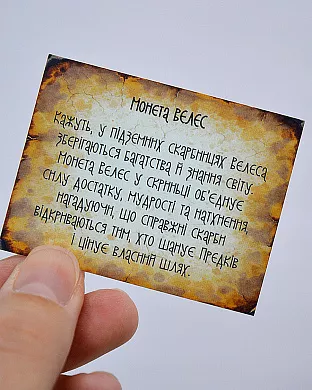 Монета Велес
Кажуть, у підземних скарбницях Велеса
зберігаються багатства й знання світу.
Монета Велес у скриньці об'єднує
силу достатку, мудрості та натхнення,
нагадуючи, що справжні скарби
відкриваються тим, хто шанує предків
і цінує власний шлях.